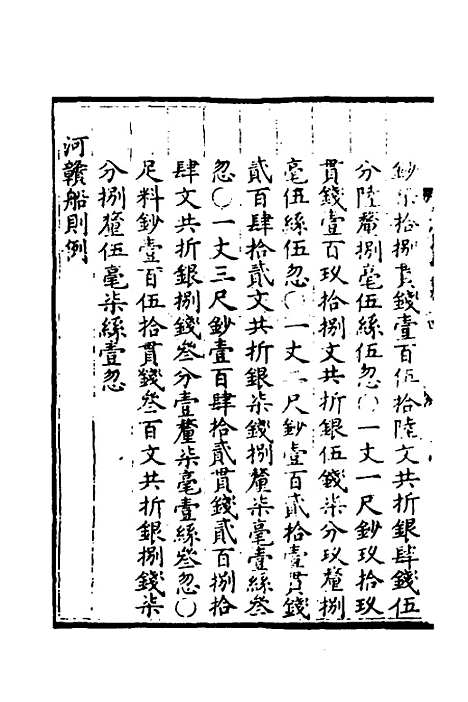 鈔柒拾捌貫錢壹百伍拾陸文共折銀肆錢伍
分陸釐捌毫伍絲伍忽〇一丈一尺鈔玖拾玖
貫錢壹百玖拾捌文共折銀伍錢柒分玖釐捌
毫伍絲伍忽〇一丈二尺鈔壹百貳拾壹貫錢
貳百肆拾貳文共折銀柒錢捌釐柒毫壹絲叁
忽〇一丈三尺鈔壹百肆拾貳貫錢貳百捌拾
肆文共折銀捌錢叁分壹釐柒毫壹絲叁忽〇
尺料鈔壹百伍拾貫錢叁百文共折銀捌錢柒
分捌釐伍毫柒絲壹忽
河贛船則例